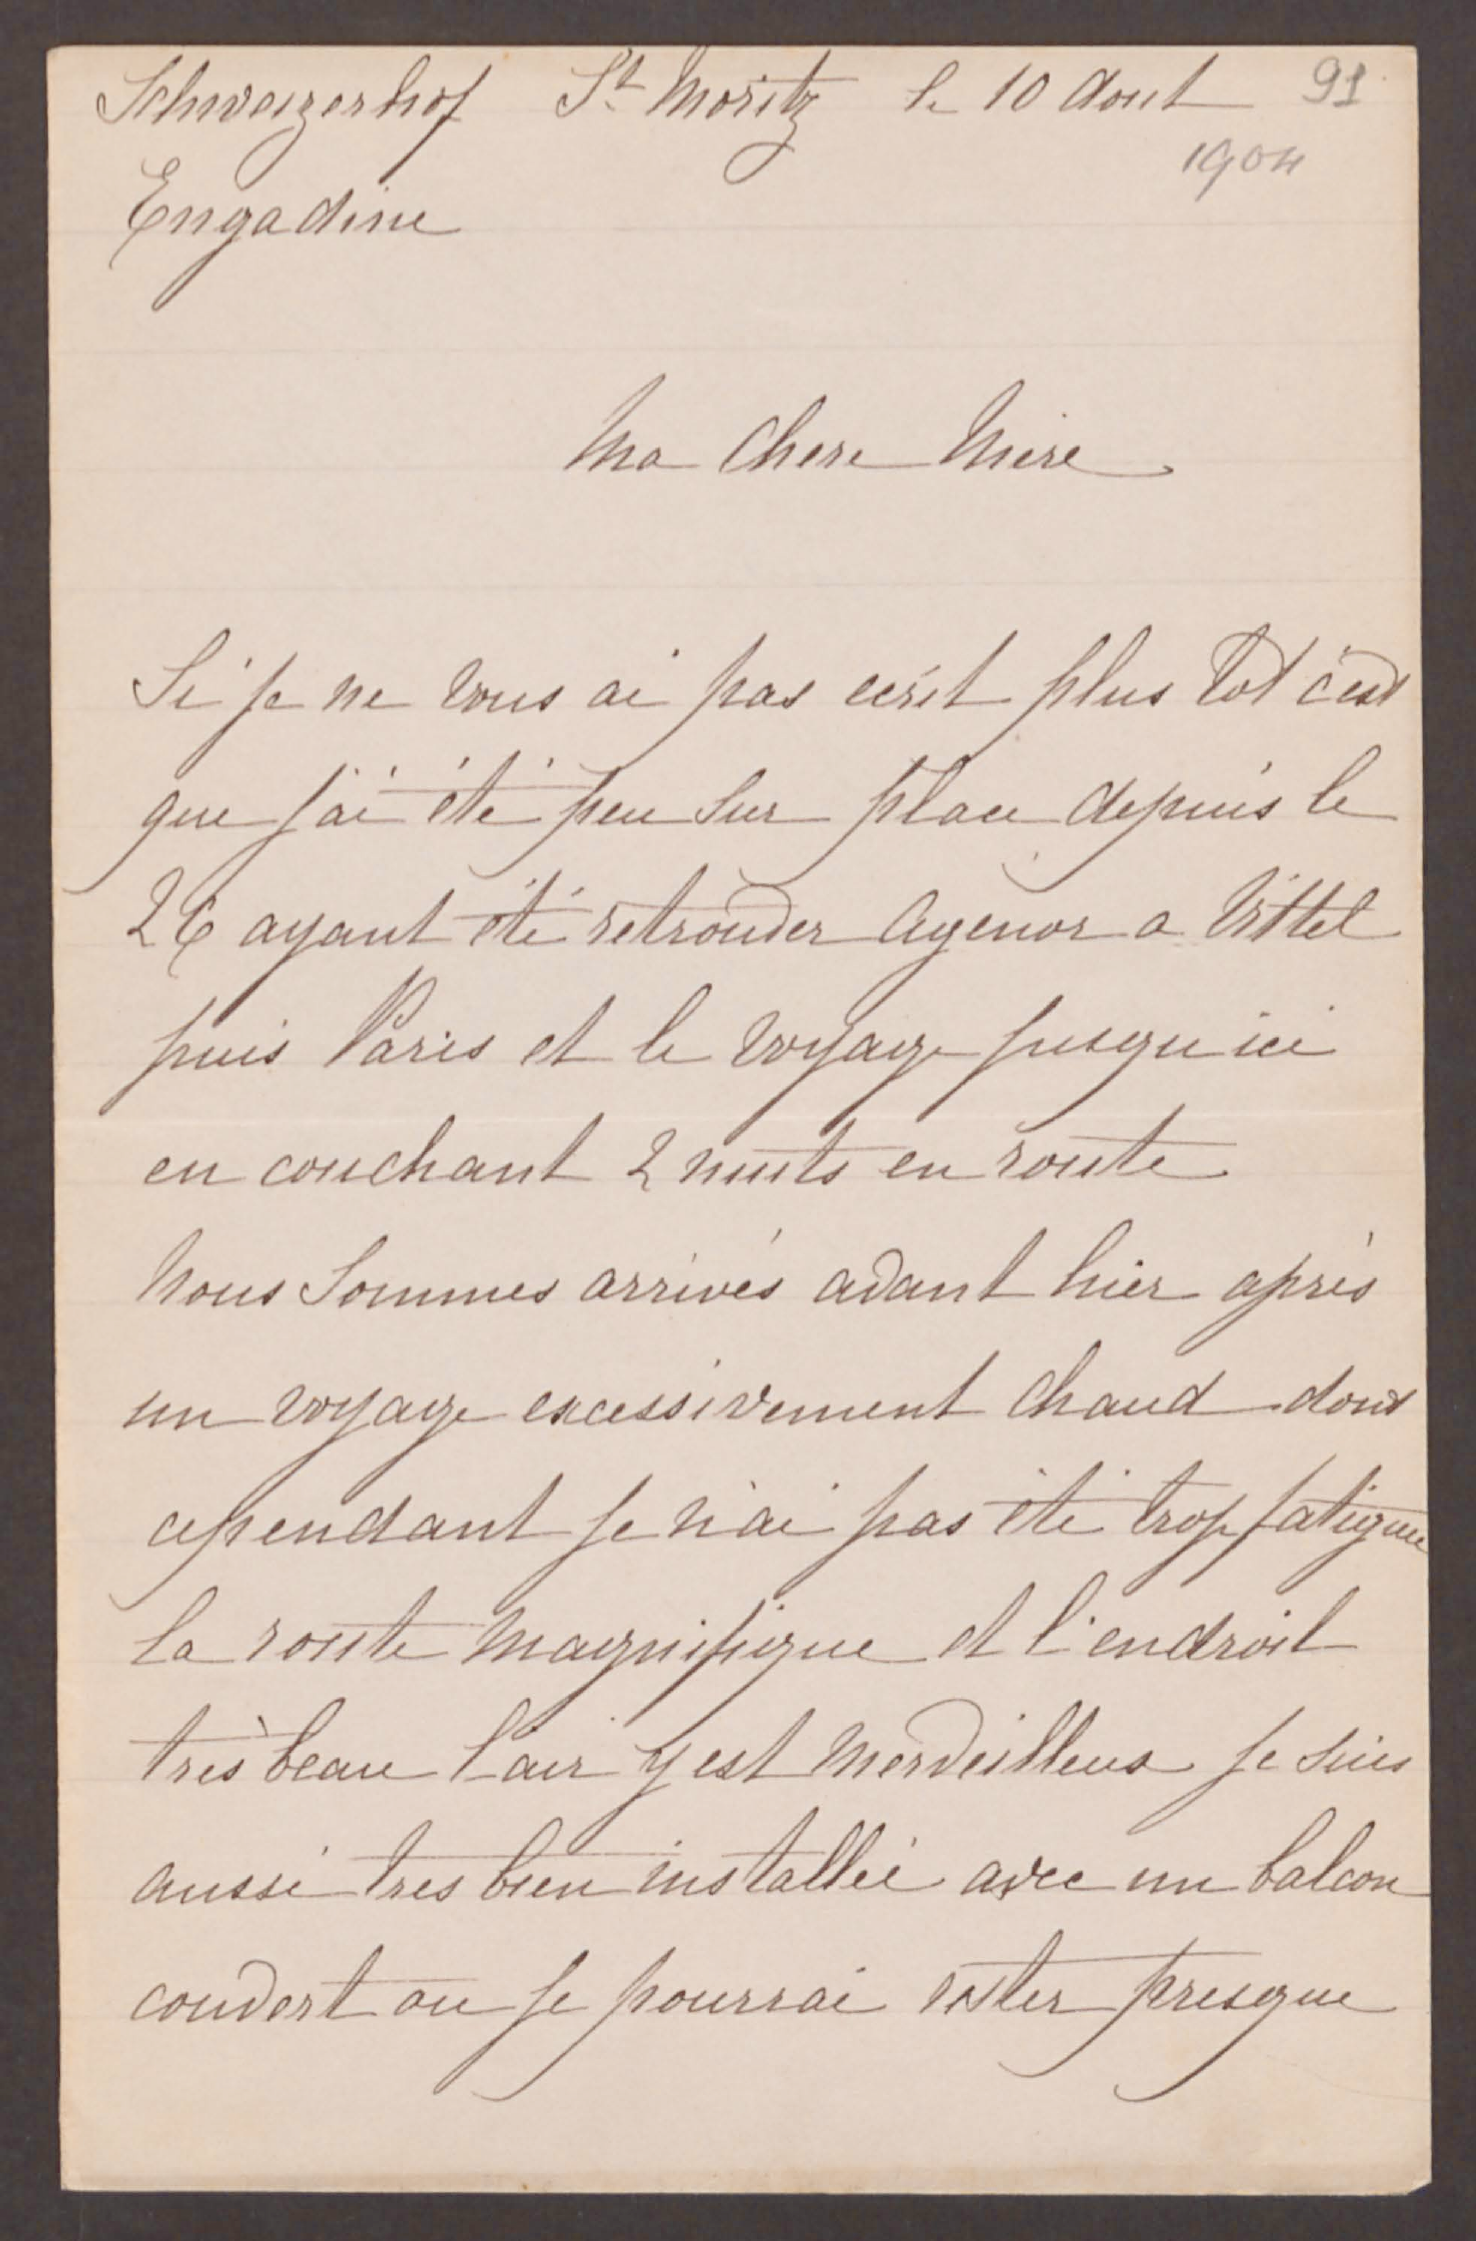 Schweizerhof St Moritz le 10 Aout 91
1904
Engadine
Ma Chere Mère
Si je ne vous ai pas écrit plus tot c'est
que j'ai été peu sur place depuis le
26 ayant été retrouver Agenor a Vittel
puis Paris et le voyage jusqu ici
en couchant 2 nuits en route
Nous sommes arrivés avant hier après
un voyage excessivement chaud dont
cependant je n'ai pas été trop fatiguée
la route magnifique et l'endroit
très beau l'air y est merveilleux je suis
aussi tres bien installée avec un balcon
couvert ou je pourrai rester presque